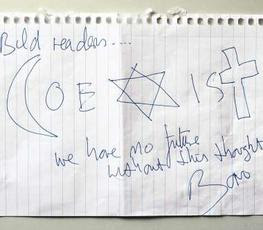 Bild readers....
COEXIST
we have no future
without this thought
Bono